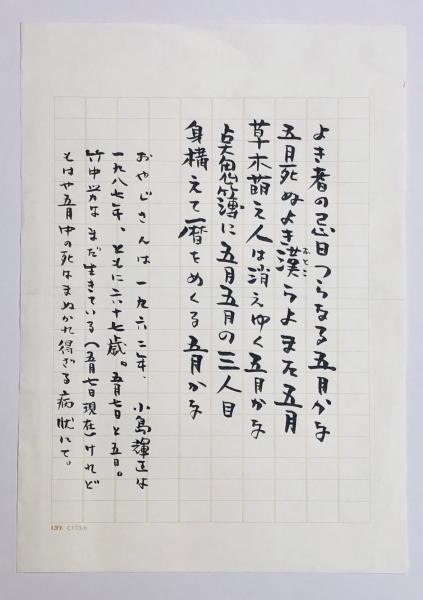 よき者の忌日つらなる五月かな
五月死ぬよき漢らよまた五月
おとこ
草木萌え人は消えゆく五月かな
点鬼簿に五月五月の三人目
身構えて暦をめくる五月かな
おやじさんは一九六二年、小島輝正は
一九八七年、ともに六十七歳。五月七日と五日。
竹中労はまだ生きている(五月七日現在)けれど
もはや五月中の死はまぬかれ得ざる病状にて。
LIFE C173-b